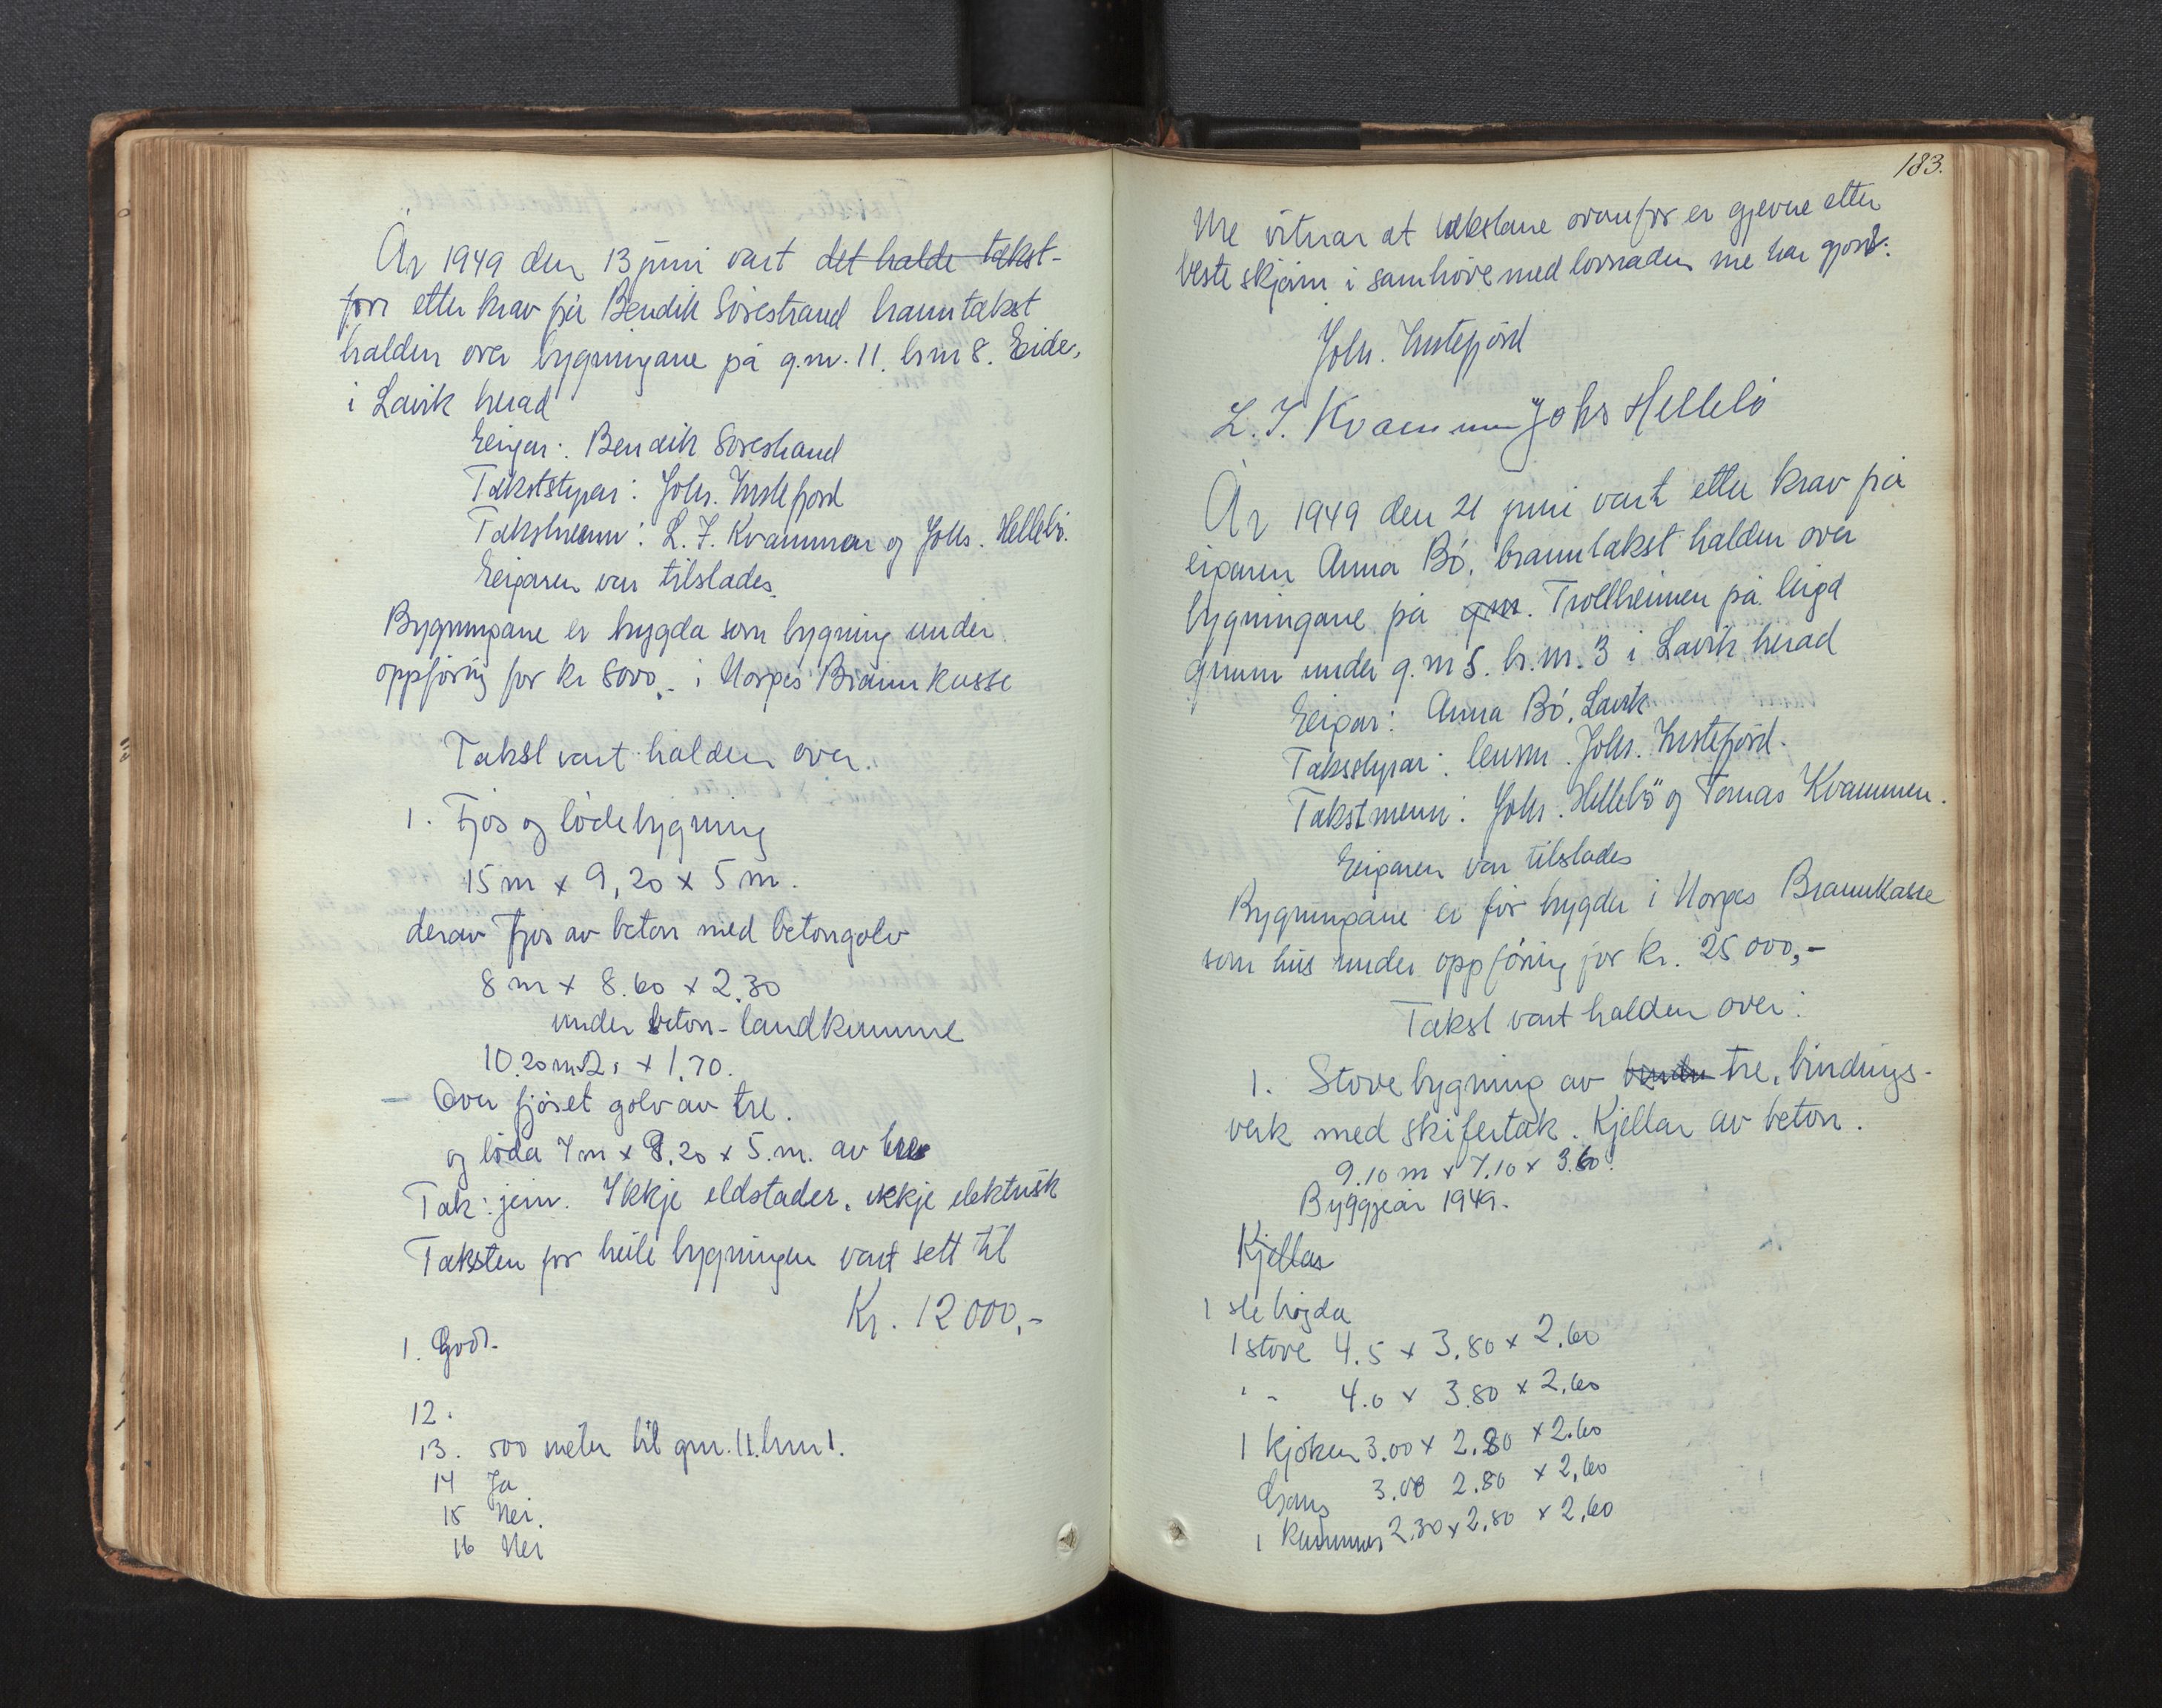 År 1949 den 13 juni vart det halde takst-
forr etter krav frå Bendik Sørestrand branntakst
halden over bygningane på g.nr. 11. br.nr 8. Eide,
i Lavik herad
Eigar: Bendik Sørestrand
Takststyrar: Johs. Instefjord
Takstmenn: L. J. Kvammen og Johs. Hellebø.
Eigaren var tilstades.
Bygningane er trygda som bygning under
oppføring for kr 8000,- i Norges Brannkasse
Takst vart halden over.
1. Fjøs og lødebygning
15 m x 9,20 x 5 m.
derav fjøs av beton med betongolv
8 m x 8.60 x 2.30
under beton-landkumme
10.20 m x 2, x 1,70.
- Over fjøset golv av tre.
og løda 7 m x 9.20 x 5. m. av tre
Tak: jern. Ikkje eldstader. ikkje elektrisk
Taksten for heile bygningen vart sett til
Kr. 12 000,-
1. God.
12.
13. 500 meter til gnr. 11. bnr 1.
14 Ja
15 Nei.
16 Nei
183.
Me vitnar at takstane ovanfor er gjevne etter
beste skjøn i samhøve med lovnaden me har gjort.
Johs. Instefjord
L. J. Kvammen Johs Hellebø
År 1949 den 21 juni vart etter krav frå
eigaren Anna Bø, branntakst halden over
bygningane på gnr. Trollheimen på leigd
grunn under g.nr 5. br.nr. 3 i Lavik herad
Eigar: Anna Bø, Lavik
Takststyrar: lensm. Johs. Instefjord.
Takstmenn: Johs. Hellebø og Tomas Kvammen.
Eigaren var tilstades
Bygningane er før trygda i Norges Brannkasse
som hus under oppføring for kr. 25 000,-
Takst vart halden over:
1. Stovebygning av tre, bindings-
verk med skifertak. Kjellar av beton.
9.10 m x 7.10 x 3.60.
Byggjeår 1949.
Kjellar
1 ste høgda
1 stove 4.5 x 3.80 x 2.60
" - 4.0 x 3.80 x 2.60
1 kjøken 3.00 x 2.80 x 2.60
Gang 3.00 2.80 x 2,60
1 kammer 2.30 x 2.80 x 2,60